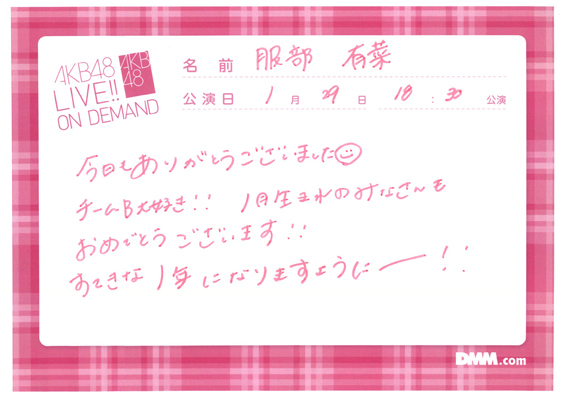 AKB48
LIVE!!
ON DEMAND
AKB
48
名前 服部 有菜
公演日 1月 29日 18:30 公演
今日もありがとうございました
チームB大好き!! 1月生まれのみなさんも
おめでとうございます!!
すてきな1年になりますようにー!!
DMM.com